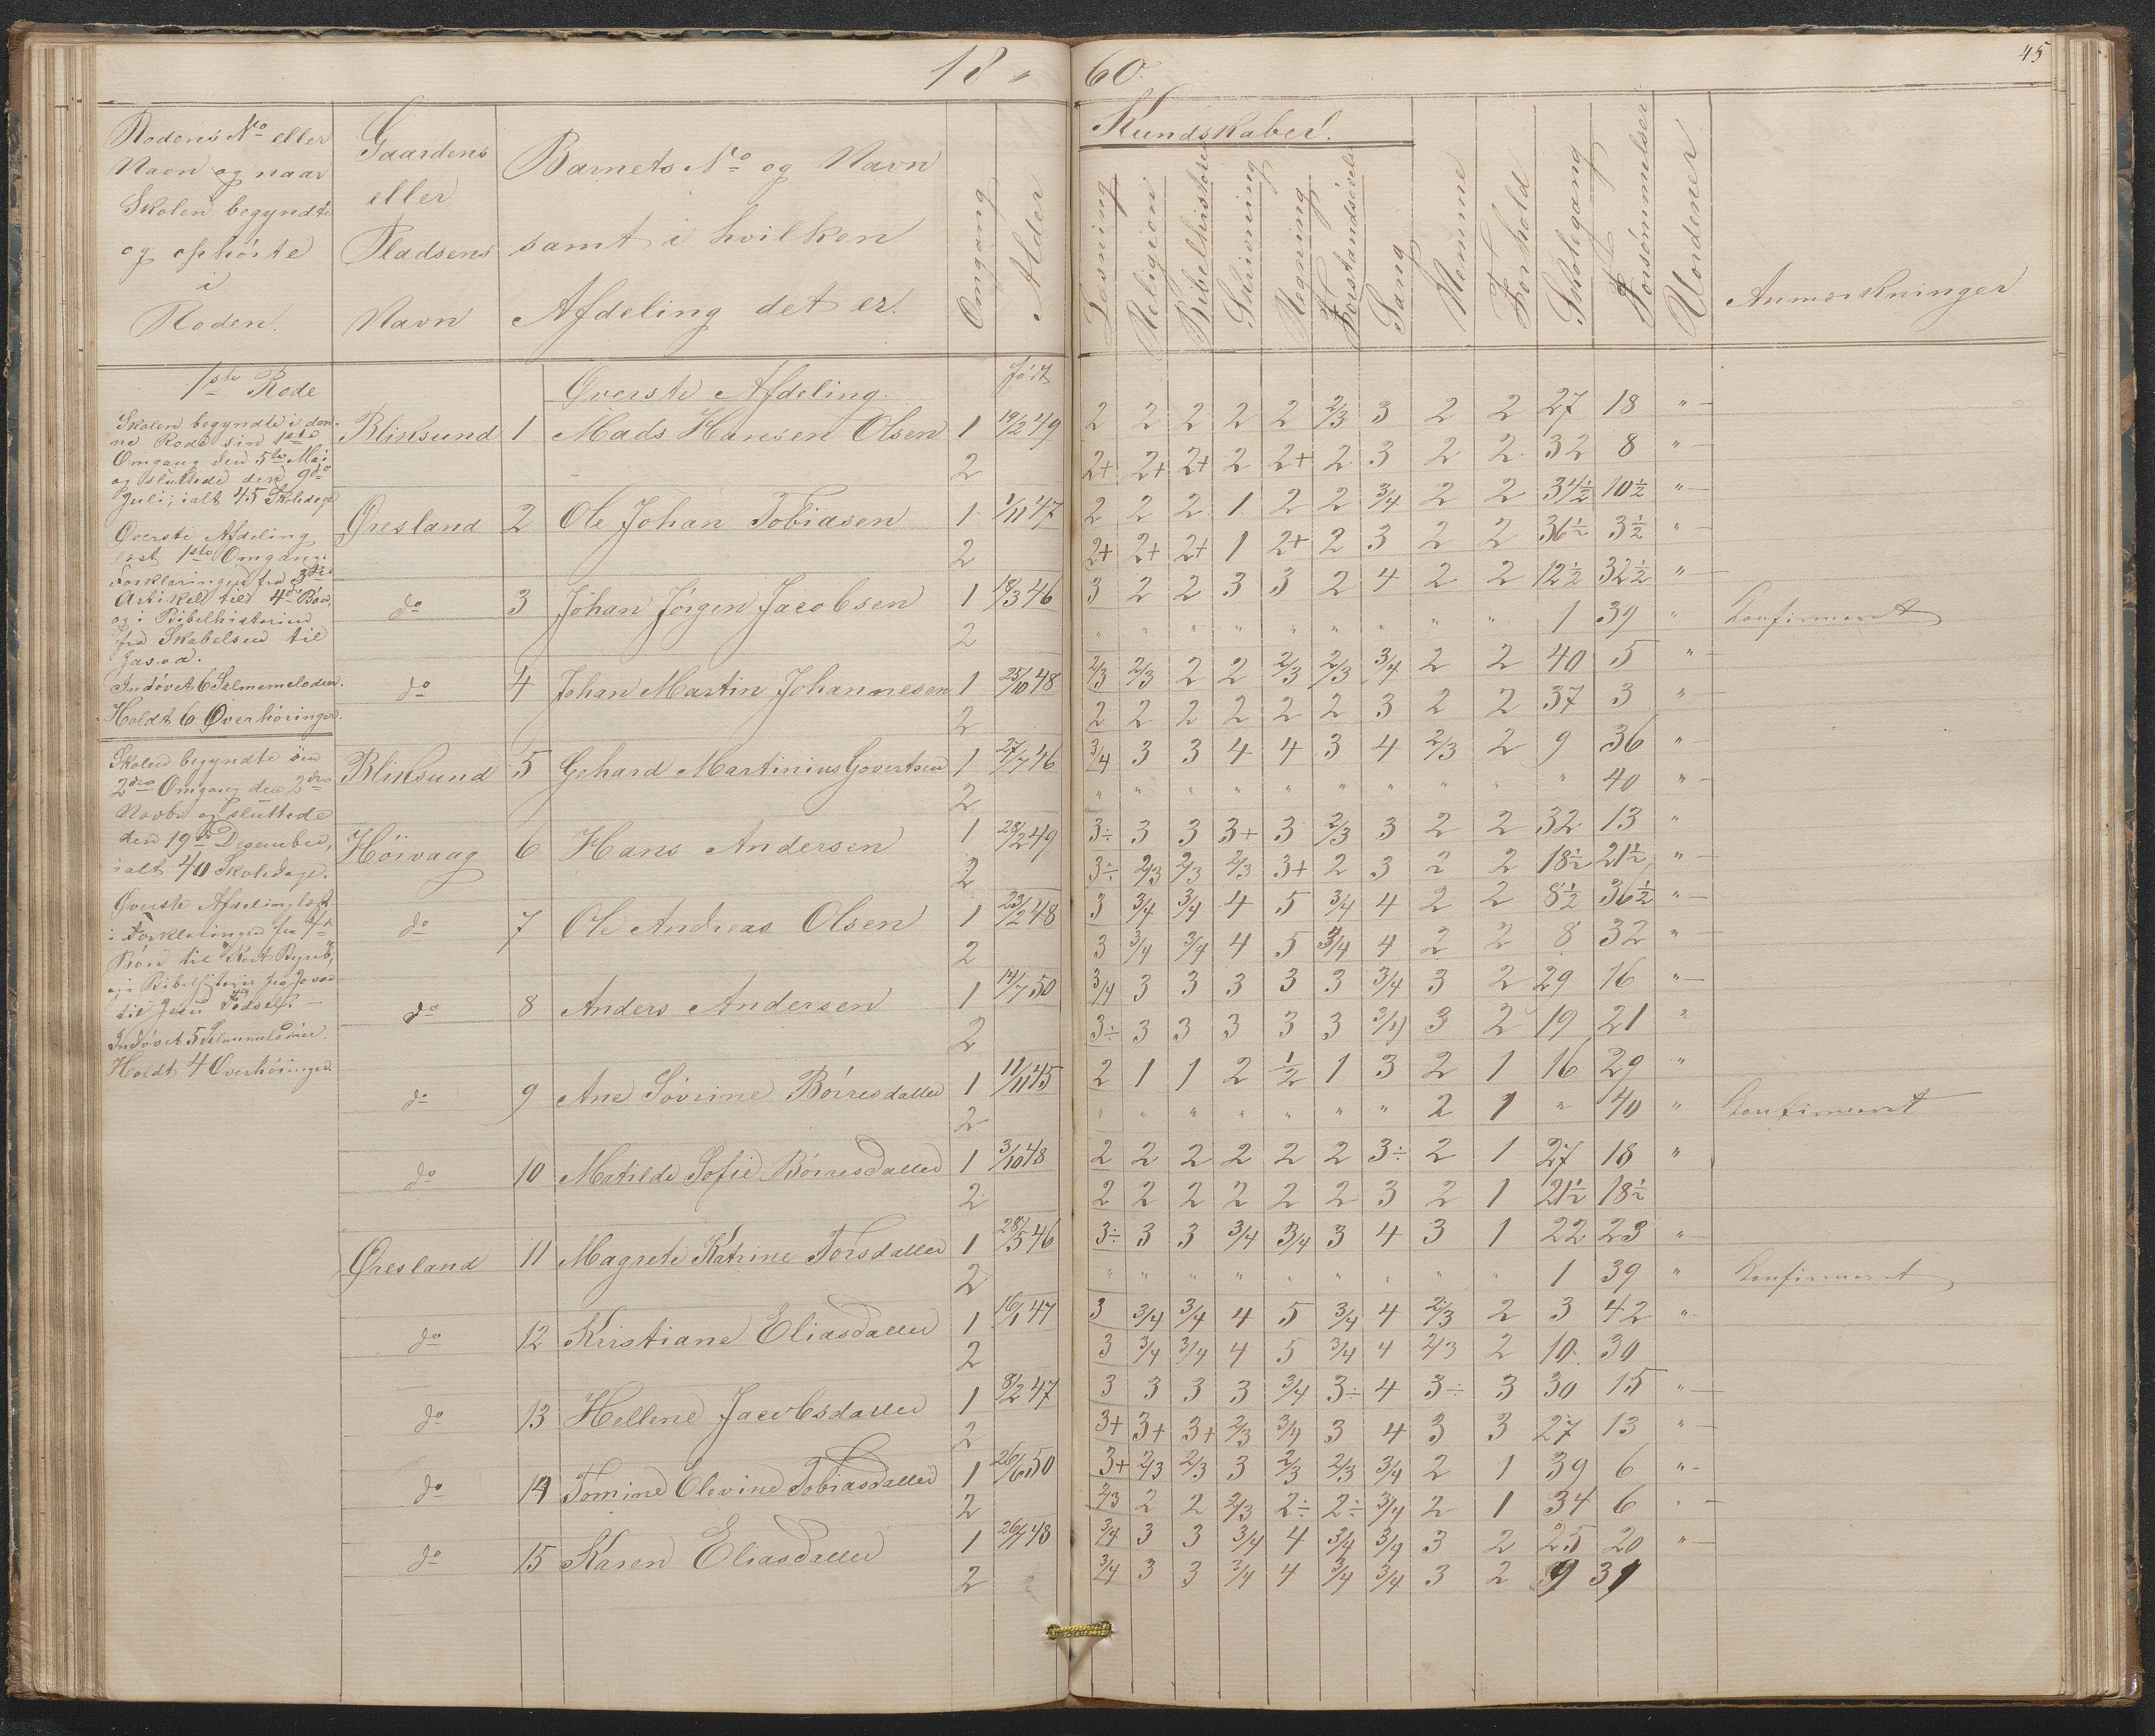 18 " 60.
45
Rodens No eller
Navn og naar
Skolen begyndte
og ophörte
i
Roden.
Gaardens
eller
Pladsens
Navn
Barnets No og Navn
samt i hvilken
Afdeling det er.
Omgang
Alder
Kundskaber.
Læsning
Religion
Bibelhistorie
Skrivning
Regning
Forstandsövelse
Sang
Nemme
Forhold
Skolegang
Forsömmelser
Uordener
Anmærkninger
1ste Rode
Skolen begyndte i den-
ne Rode sin 1ste
Omgang den 5te Mai
og sluttede den 9de
Juli; ialt 45 Skoledage
Øverste Afdeling
læst 1ste Omgang:
Forklaringen fra 3die
Artikel til 4de Bön,
og i Bibelhistorien
fra Skabelsen til
Josva.
Indövet 6 Salmemelodier.
Holdt 6 Overhöringer.
Skolen begyndte sin
2den Omgang den 2den
Novbr og sluttede
den 19de Desember,
ialt 40 Skoledage.
Øverste Afdeling læst
i Forklaringen fra
Bön til
og i Bibelhistorie fra Josva
til Jesu Födsel.
Indövet 5 Salmemelodier.
Holdt 4 Overhöringer.
Øverste Afdeling. födt
Bliksund 1 Mads Hansen Olsen 1 19/2 49 2 2 2 2 2 2/3 3 2 2 27 18 "
2 2+ 2+ 2+ 2 2+ 2 3 2 2 32 8 "
Øresland 2 Ole Johan Tobiasen 1 1/11 47 2 2 2 1 2 2 3/4 2 2 34½ 10½ "
2 2+ 2+ 2+ 1 2+ 2 3 2 2 36½ 3½ "
do 3 Johan Jörgen Jacobsen 1 18/3 46 3 2 2 3 3 2 4 2 2 12½ 32½ "
2 " " " " " " " " " 1 39 " Konfirmeret
do 4 Johan Martin Johannesen 1 25/10 48 2/3 2/3 2 2 2/3 2/3 3/4 2 2 40 5 "
2 2 2 2 2 2 2 3 2 2 37 3 "
Bliksund 5 Gehard Martinius Govertsen 1 27/7 46 3/4 3 3 4 4 3 4 2/3 2 9 36 "
2 " " " " " " " " " " 40 "
Höivaag 6 Hans Andersen 1 28/2 49 3÷ 3 3 3+ 3 2/3 3 2 2 32 13 "
2 3÷ 2/3 2/3 2/3 3+ 2 3 2 2 18½ 21½ "
do 7 Ole Andreas Olsen 1 23/2 48 3 3/4 3/4 4 5 3/4 4 2 2 8½ 36½ "
2 3 3/4 3/4 4 5 3/4 4 2 2 8 32 "
do 8 Anders Andersen 1 14/7 50 3/4 3 3 3 3 3 3/4 3 2 29 16 "
2 3÷ 3 3 3 3 3 3/4 3 2 19 21 "
do 9 Ane Sövrine Börresdatter 1 11/11 45 2 1 1 2 ½ 1 3 2 1 16 29 "
2 " " " " " " " 2 1 " 40 " Konfirmeret
do 10 Matilde Sofie Börresdatter 1 3/10 48 2 2 2 2 2 2 3÷ 2 1 27 18 "
2 2 2 2 2 2 2 3 2 1 21½ 18½
Øresland 11 Magrete Katrine Torsdatter 1 28/5 46 3÷ 3 3 3/4 3/4 3 4 3 1 22 23 "
2 " " " " " " " " " 1 39 " Konfirmeret
do 12 Kristiane Eliasdatter 1 16/1 47 3 3/4 3/4 4 5 3/4 4 2/3 2 3 42 "
2 3 3/4 3/4 4 5 3/4 4 2/3 2 10 30
do 13 Hellene Jacobsdatter 1 8/2 47 3 3 3 3 3/4 3÷ 4 3÷ 3 30 15 "
2 3+ 3+ 3+ 2/3 3/4 3 4 3 3 27 13 "
do 14 Tomine Olevine Tobiasdatter 1 26/6 50 3+ 2/3 2/3 3 2/3 2/3 3/4 2 1 39 6 "
2 2/3 2 2 2/3 2÷ 2÷ 3/4 2 1 34 6 "
do 15 Karen Eliasdatter 1 3/4 3 3 3/4 4 3/4 3/4 3 2 25 20 "
2 3/4 3 3 3/4 4 3/4 3/4 3 2 9 31